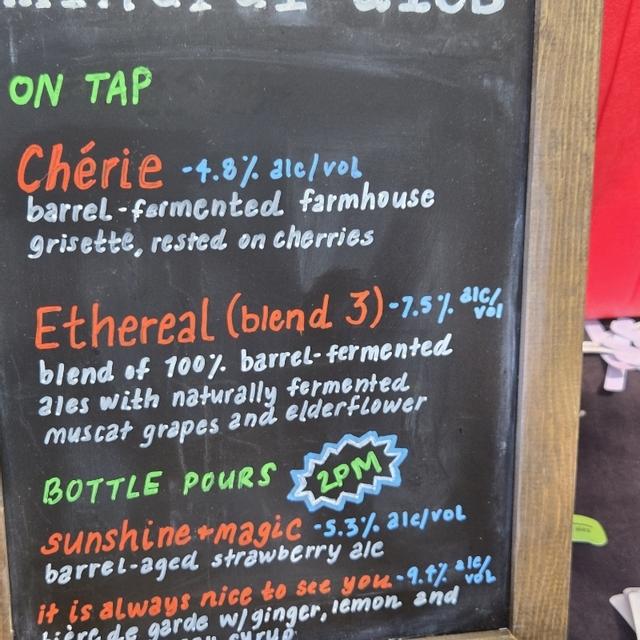 ON TAP
Chérie -4.8% alc/vol
barrel-fermented farmhouse
grisette, rested on cherries
Ethereal (blend 3) -7.5% alc/vol
blend of 100% barrel-fermented
ales with naturally fermented
muscat grapes and elderflower
BOTTLE POURS 2PM
sunshine + magic -5.3% alc/vol
barrel-aged strawberry ale
it is always nice to see you -9.4% alc/vol
bière de garde w/ginger, lemon and
syrup